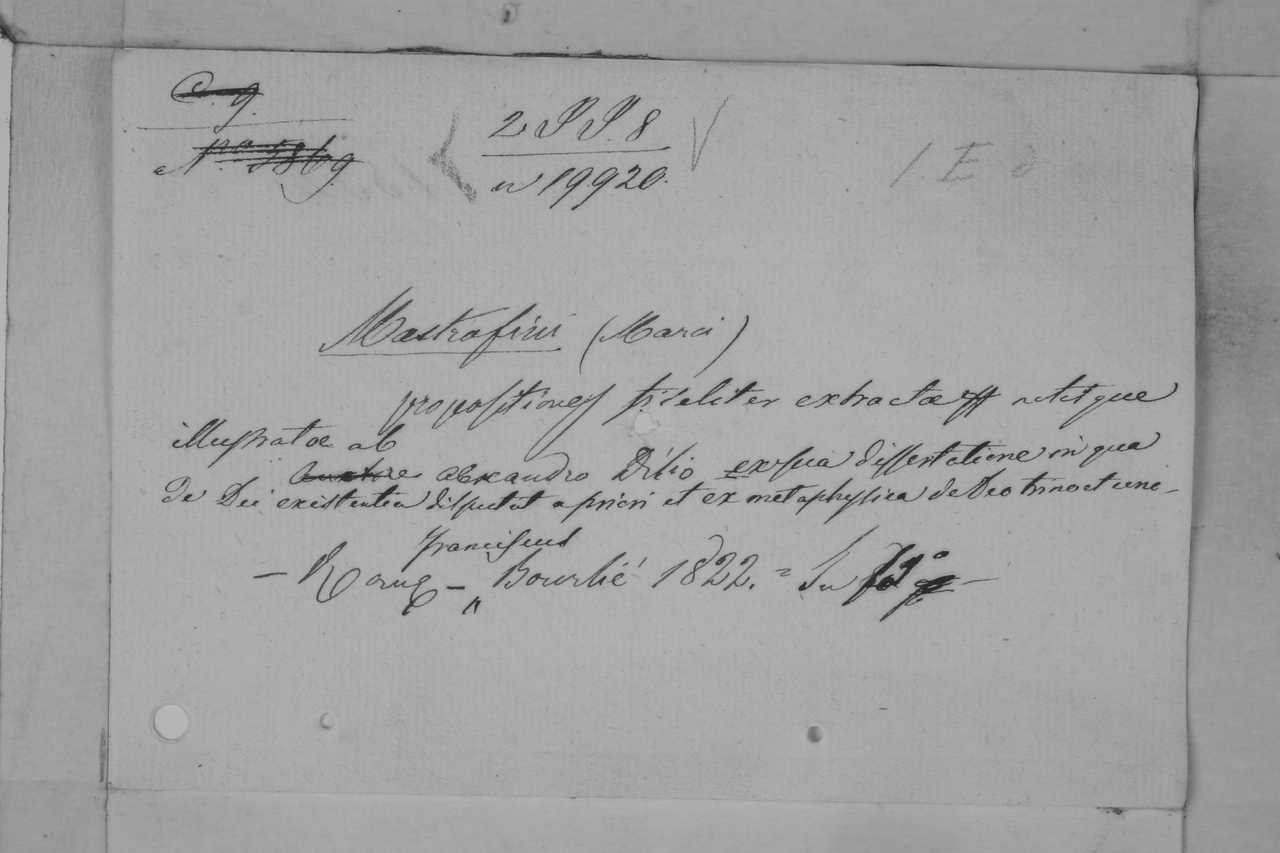 C. 9.
N.º 5869.
2 P P. 8
n 19920.
1 E
Mastrofini (Marci)
propositiones fideliter extractæ notisque
illustratæ ab
alexandro Dilio ex sua dissertatione in qua
de Dei existentia disputat a priori et ex metaphysica de Deo trino et uno-
franciscus
- Romæ - „ Bourlié 1822. = In fº -